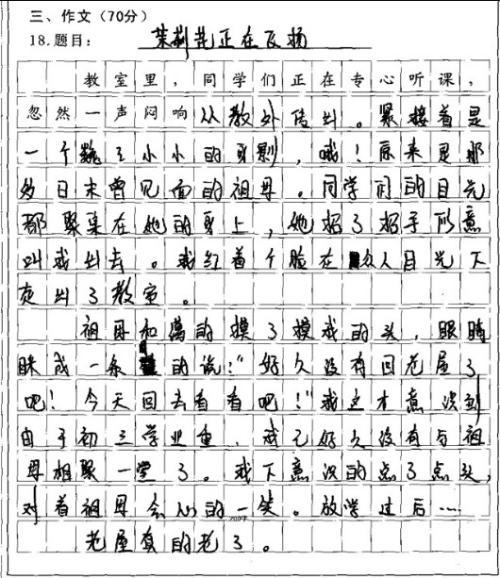 三、作文（70分）
18.题目： 茉莉花正在飞扬
教室里，同学们正在专心听课，
忽然一声闷响从教外传出。紧接着是
一个巍巍小小的身影，哦！原来是那
多日未曾见面的祖母。同学们的目光
都聚集在她的身上，她招了招手示意
叫我出去。我红着个脸在众人目光下
走出了教室。
祖母和蔼的摸了摸我的头，眼睛
眯成一条的说：“好久没有回老屋了
吧！今天回去看看吧！”我这才意识到
由于初三学业重，我已好久没有与祖
母相聚一堂了。我下意识的点了点头，
对着祖母会心的一笑。放学过后……
老屋真的老了。